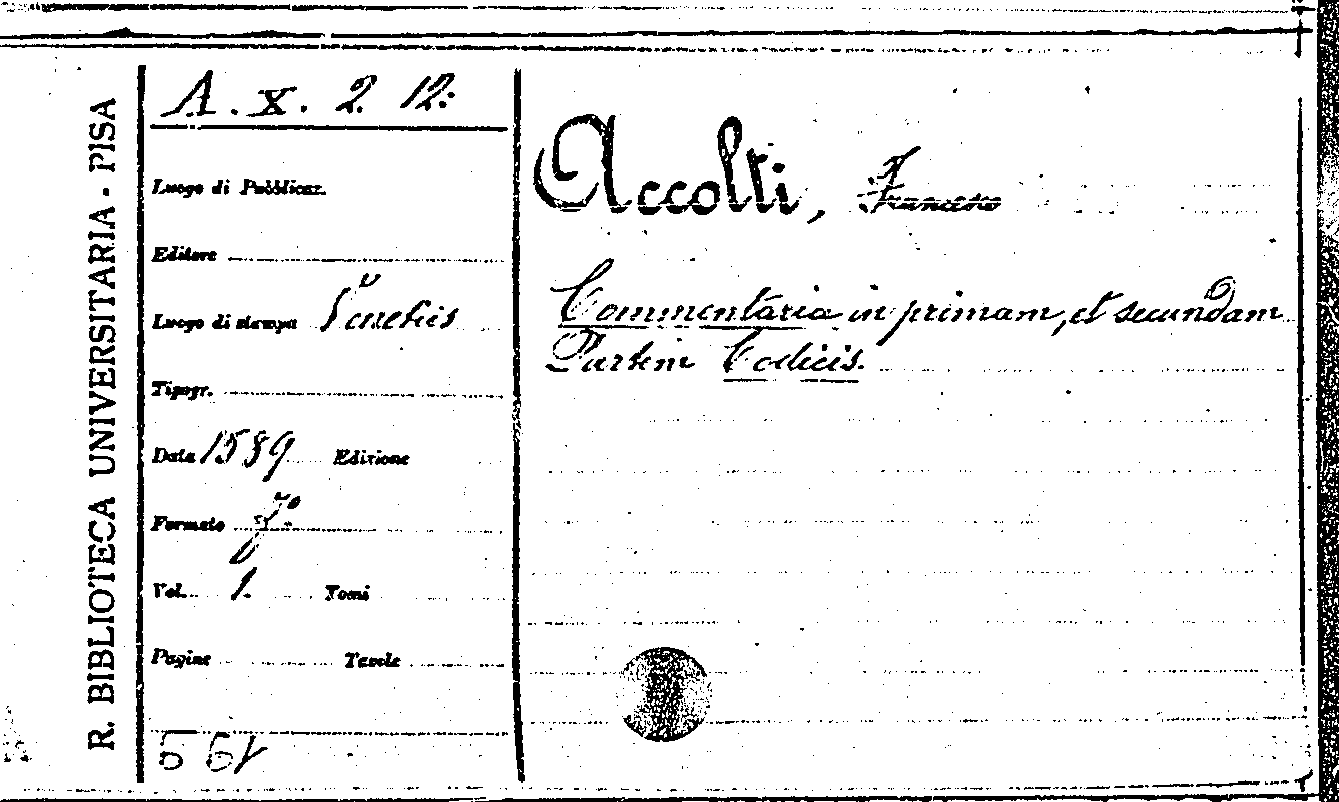 R. BIBLIOTECA UNIVERSITARIA - PISA
A. X. 2. 12.
Luogo di Pubblicaz.
Editore
Luogo di stampa Venetiis
Tipogr.
Data 1589 Edizione
Formato f.º
Vol. 1. Tomi
Pagine Tavole
Accolti, Francesco
Commentaria in primam, et secundam
Partem Codicis.